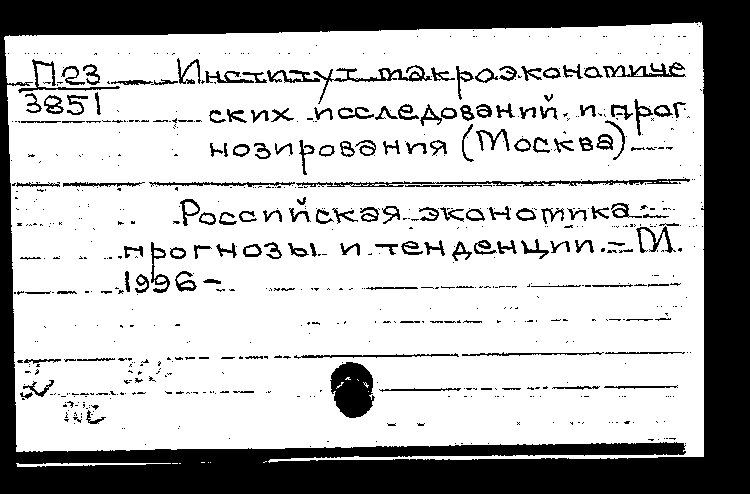 Пез Институт макроэкономиче
3851 ских исследований и прог
нозирования (Москва)
Российская экономика:
прогнозы и тенденции. – М.
1996 –